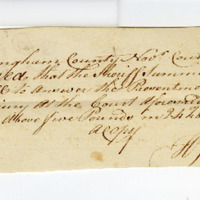 ingham County Nov.r Cou
ed that the Sheriff Summon
to Answer the Presentmen
Jury at the Court aforesaid
Above five Pounds in
a Copy